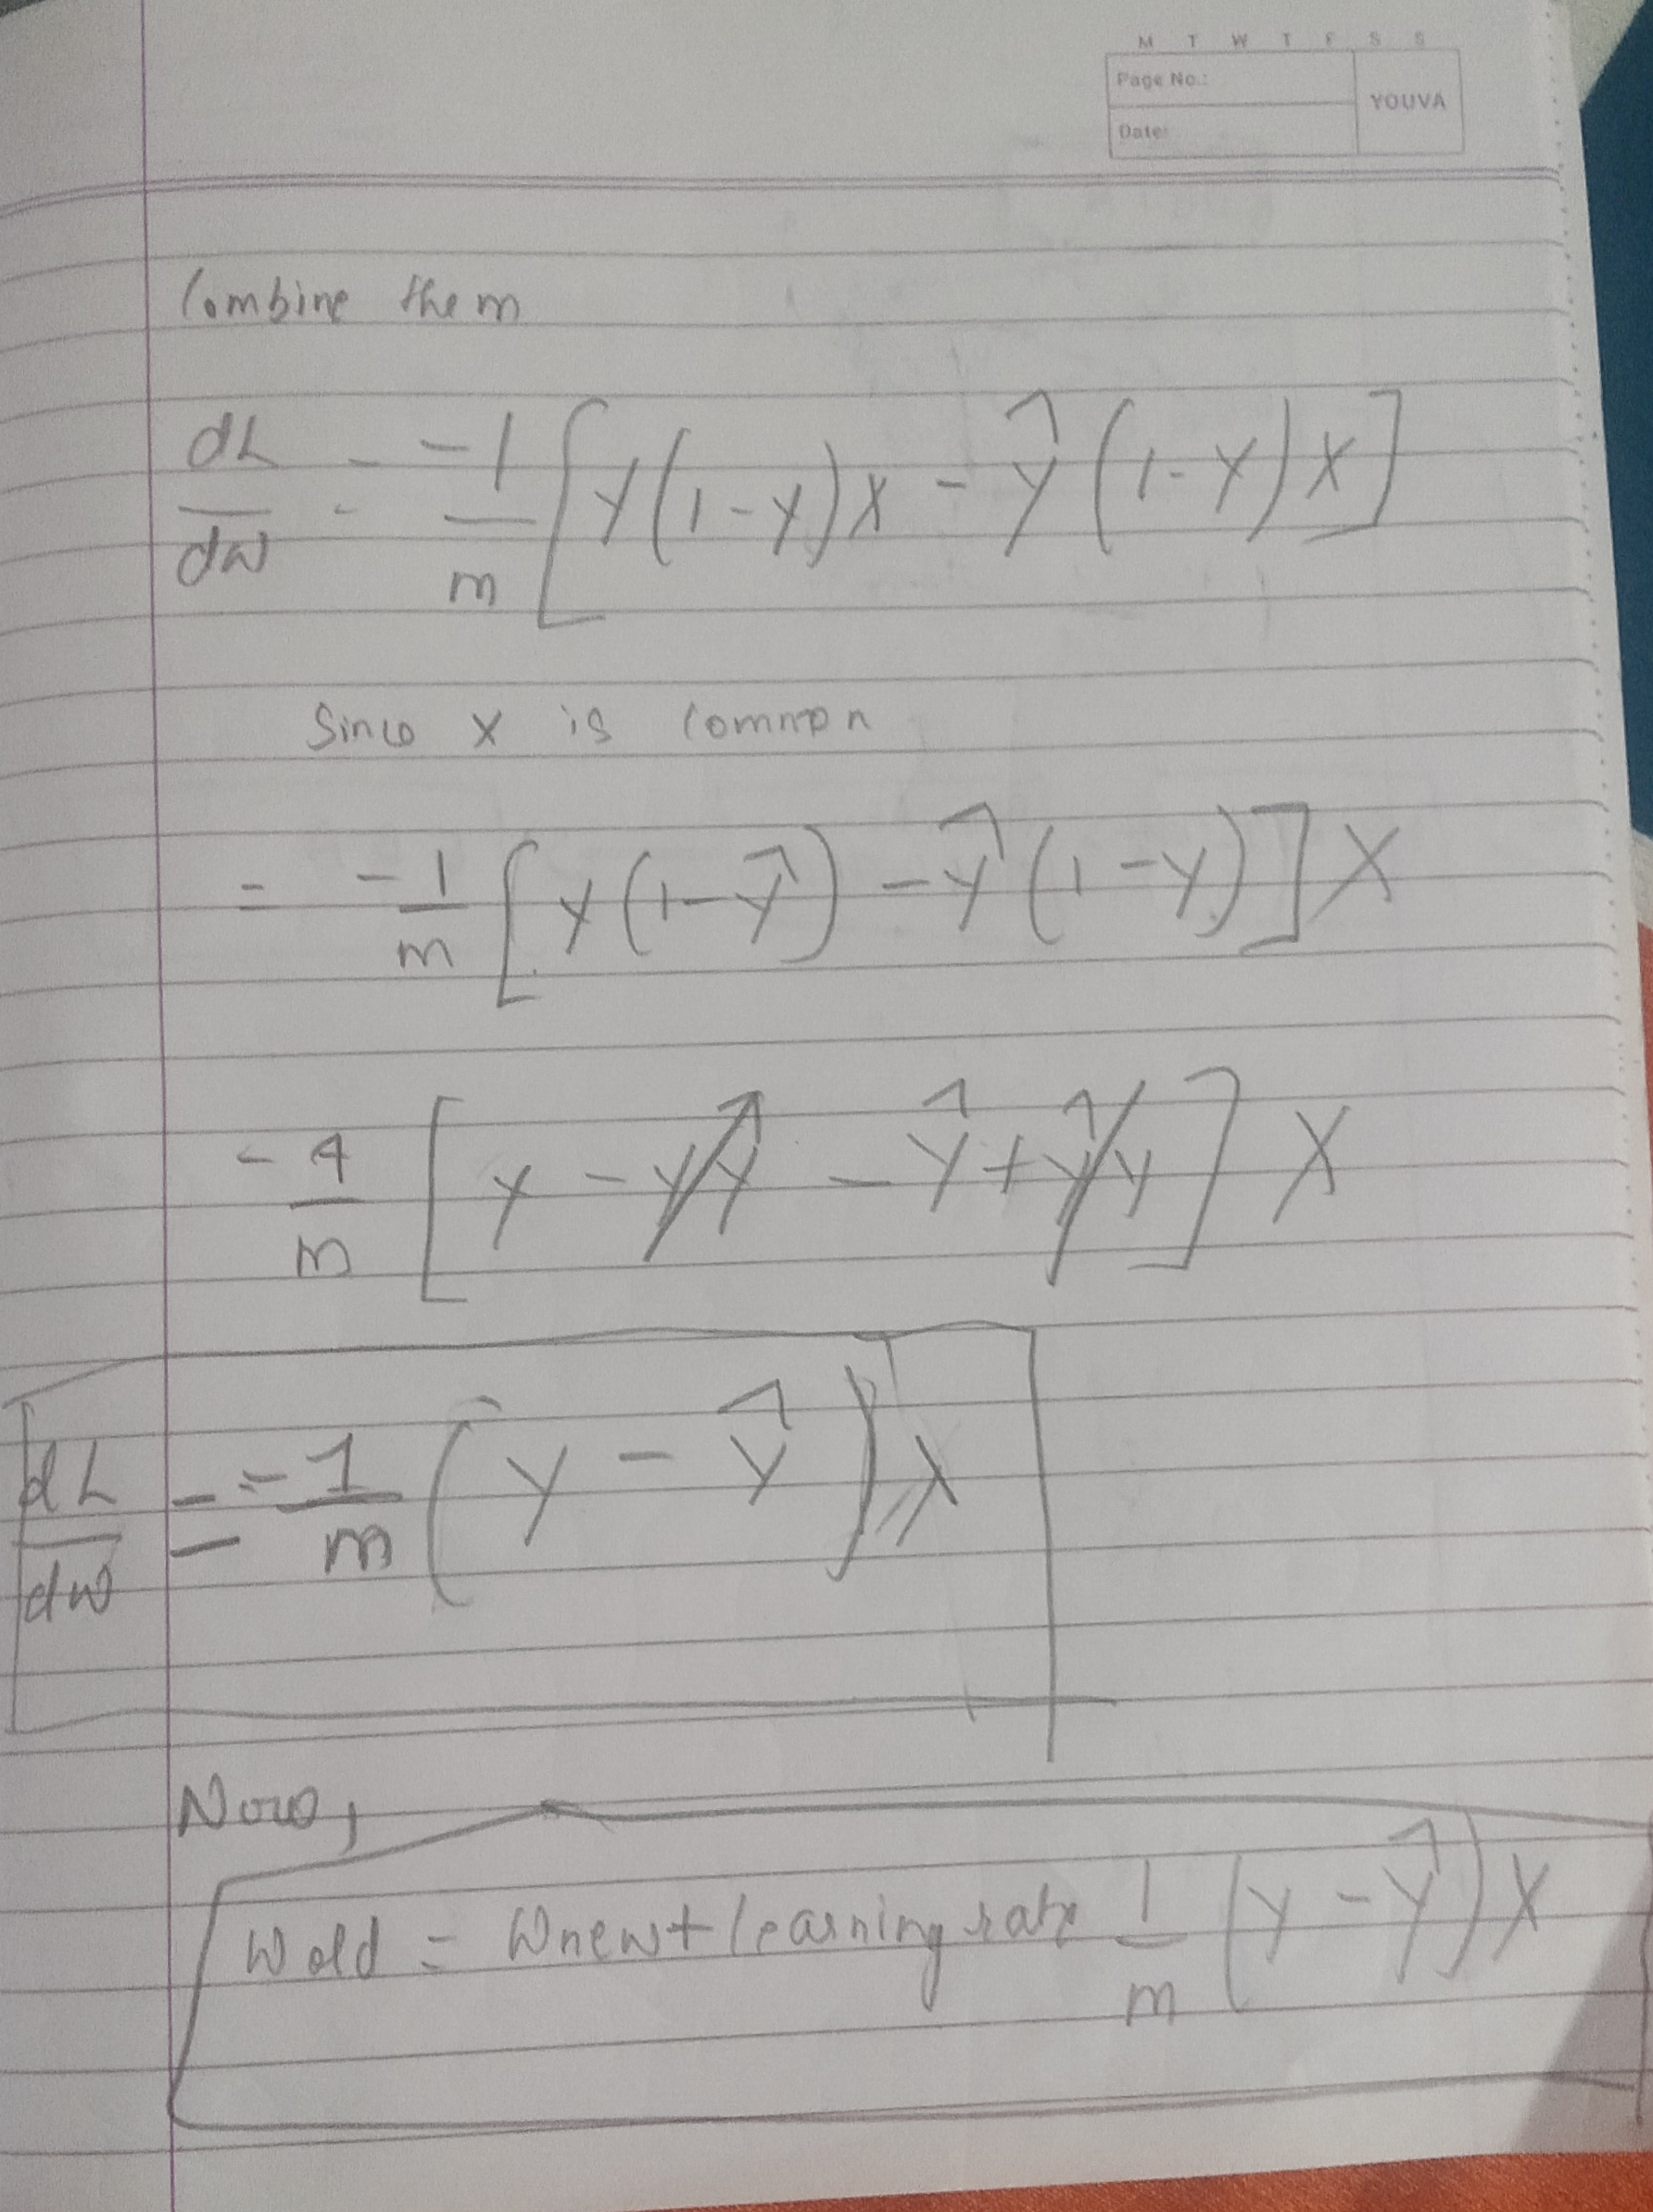 M T W T F S S
Page No.:
YOUVA
Date:
Combine them
dL/dw = -1/m [y(1-y)x - ŷ(1-y)x]
Since x is common
= -1/m [y(1-ŷ) - ŷ(1-y)]X
-1/m [y - yŷ - ŷ + ŷy] X
dL/dw = -1/m (y - ŷ) X
Now,
Wold = Wnew + learning rate 1/m (y - ŷ) X